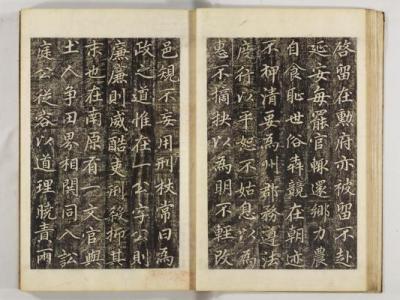 啓留在勳府亦被留不赴
延安每罷官輙還鄉力農
自食恥世俗犇競在朝迹
不抑清要為州郡務遵法
度行以平恕不姑息以為
恵不摘抉以為明不輕改
邑規不妄用刑扶常曰為
政之道惟在一公字公則
廉廉則威酷吏獨後抑其
末也在南原有一文官與
土人爭田界相閱同人訟
庭公從容以道理曉責兩